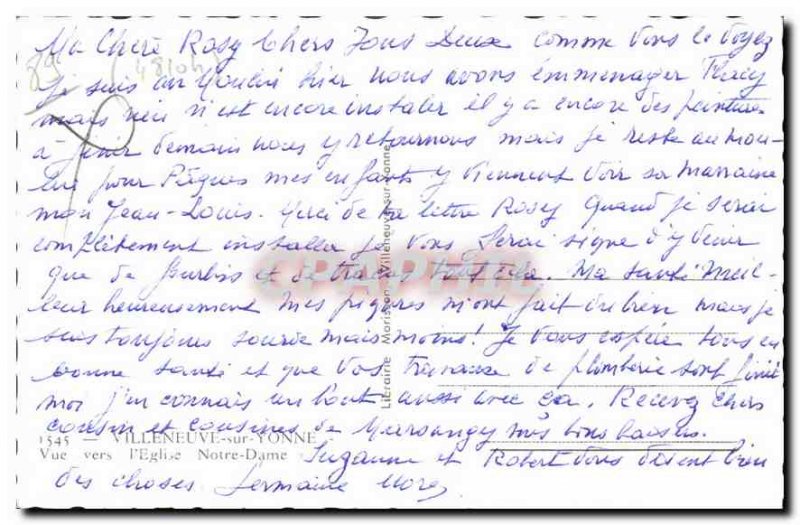 Ma Chère Rosy Chers Tous Deux comme vous le voyez
je suis au Moulin hier nous avons emmenager Thacy
mais rien n'est encore instaler il y a encore des peintures
à finir demain nous y retournons mais je reste au mou-
lin pour Pâques mes enfants y viennent voir sa Marraine
mon Jean-Louis. Merci de ta lettre Rosy Quand je serai
complètement installer je vous ferai signe d'y venir
que de et de tracas tout cela. Ma santé meil-
leur heureusement mes piqures m'ont fait du bien mais je
suis toujours sourde mais moins! Je vous espère tous en
bonne santé et que vos travaux de plomberie sont finie
moi j'en connais un bout aussi avec ça. Recevez chers
cousin et cousines de Marsangy mes bons baisers.
1545 — VILLENEUVE-sur-YONNE
Vue vers l'Eglise Notre-Dame
Suzanne et Robert vous disent bien
des choses. Germaine
Librairie Morisson - Villeneuve-sur-Yonne